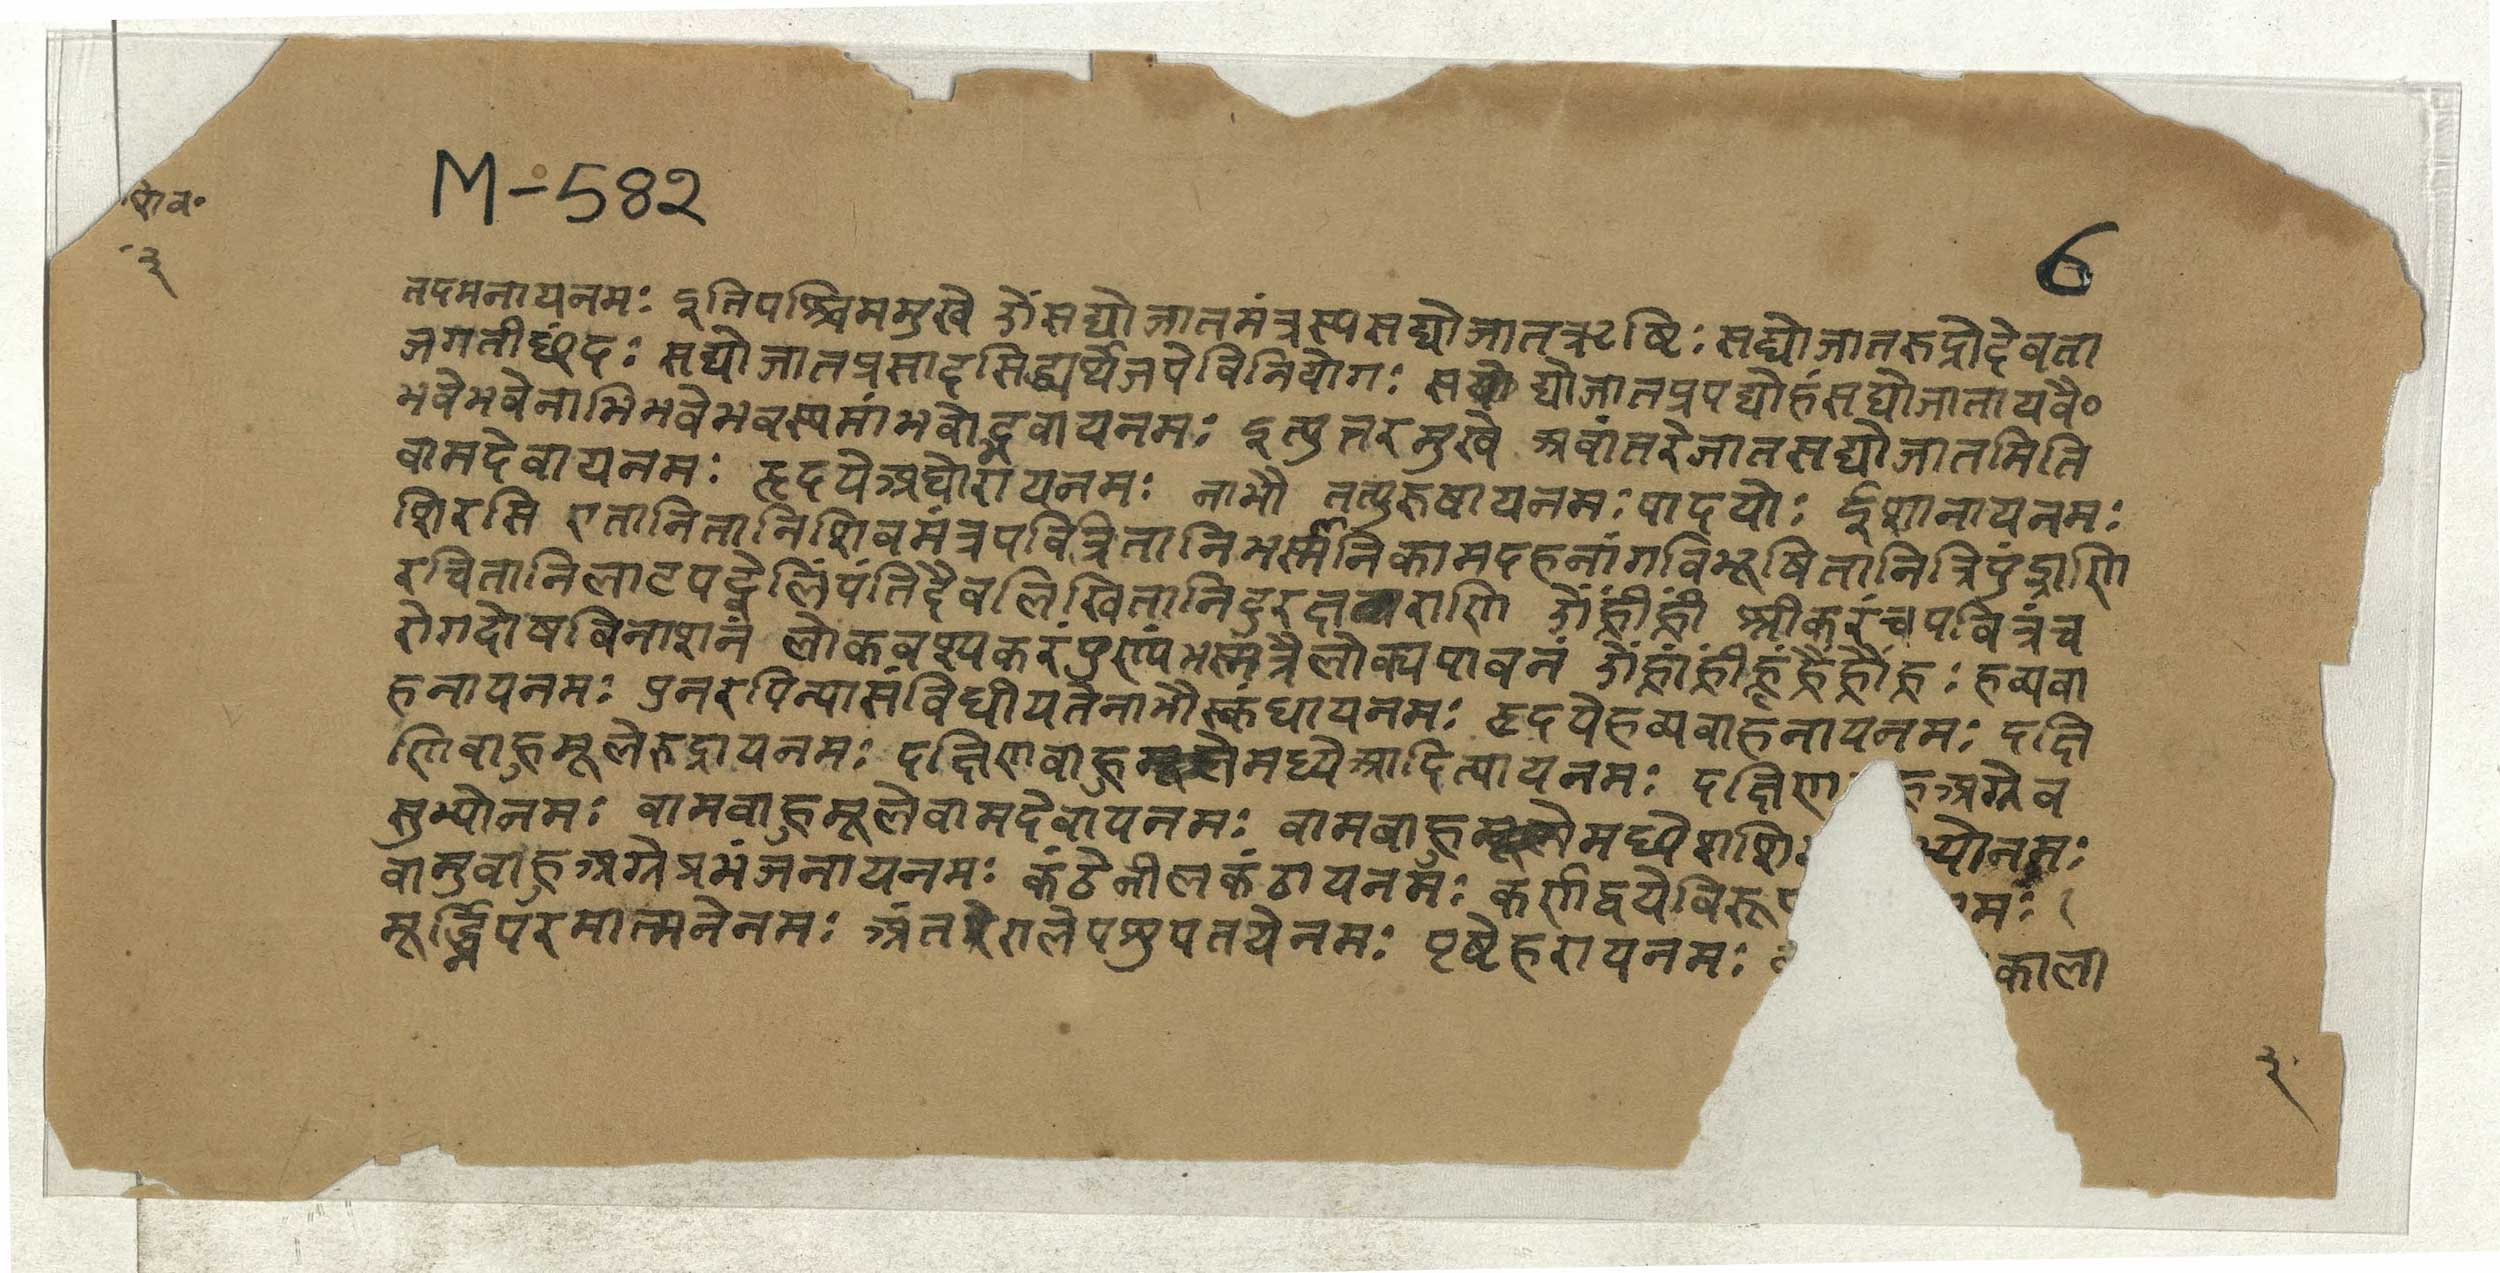 M-582
6
शिव॰
३
तदमनायनमः इतिपश्चिममुखे ॐसद्योजातमंत्रस्यसद्योजातऋषिः सद्योजातरुद्रोदेवता
जगतीछंदः सद्योजातप्रसादसिद्ध्यर्थेजपेविनियोगः सद्योजातप्रपद्योहंसद्योजातायवै॰
भवेभवेनाभिभवेभवस्यमांभवोद्भवायनमः इत्युत्तरमुखे अवांतरेजातसद्योजातमिति
वामदेवायनमः हृदयेअघोरायनमः नाभौ तत्पुरुषायनमः पादयोः ईशानायनमः
शिरसि एतानितानिशिवमंत्रपवित्रितानिभस्मनिकामदहनांगविभूषितानित्रिपुंड्राणि
रचितानिलाटपट्टेलिंपंतिदैवलिखितानिदुरक्षराणि ॐह्रींह्रीं श्रीकरंचपवित्रंच
रोगदोषविनाशनं लोकवश्यकरंपुण्यंभस्मत्रैलोक्यपावनं ॐह्रांह्रींह्रूंह्रैंह्रौंह्रः हव्यवा
हनायनमः पुनरपिन्यासंविधीयतेनाभौस्कंधायनमः हृदयेहव्यवाहनायनमः दक्षि
णिबाहुमूलेरुद्रायनमः दक्षिणवाहुमध्येआदित्यायनमः दक्षिण हुअग्रेव
सुभ्योनमः वामवाहुमूलेवामदेवायनमः वामवाहुमध्येशशि भ्योनमः
वामुवाहुअग्रेप्रभंजनायनमः कंठेनीलकंठायनमः कर्णद्वयेविरूप मः
मूर्द्ध्निपरमात्मनेनमः अंतरालेपशुपतयेनमः पृष्टेहरायनमः काला
३